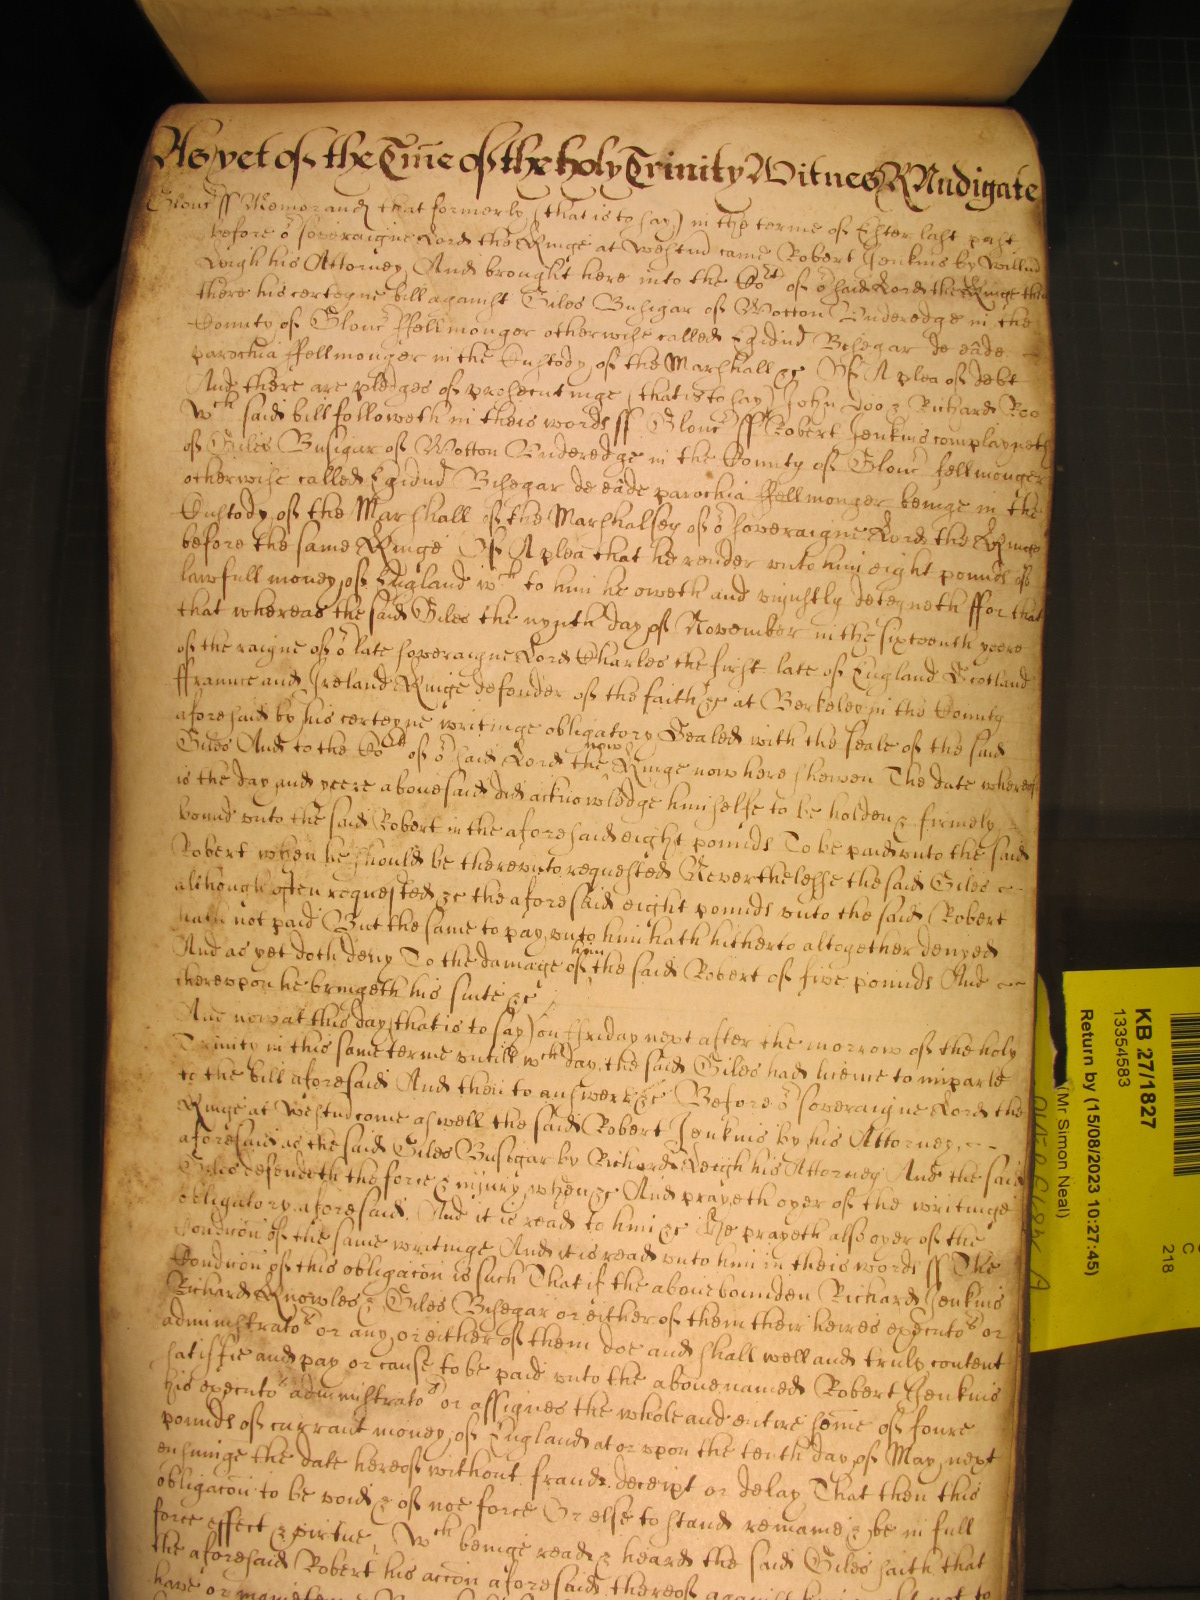 As yet of the Tr̃me of the holy Trinity Witnes R Nudigate
Glouc ss Memorand that formerly (that is to say) in the terme of Ester last past
before oʳ soveraigne Lord the Kinge at Westm̃ came Robert Jenkins by Willm̃
Leigh his Attorney, And brought here into the Coʳᵗ of oʳ said Lord the Kinge then
there his certeyne bill against Giles Busigar of Wotton Underedge in the
County of Glouc ffellmonger otherwise called Egidiu Bisegar de eâde
parochia ffellmonger in the Custody of the Marshall &c Of A plea of debt
And there are pledges of prosecutinge (that is to say) John Doo & Richard Roo
Wᶜʰ said bill followeth in theis words ss Glouc ss Robert Jenkins complayneth
of Giles Busigar of Wotton Underedge in the County of Glouc fellmonger
otherwise called Egidiu Bisegar de eâde parochia ffellmonger beinge in the
Custody of the Marshall of the Marshalsey of oʳ soveraigne Lord the Kinge
before the same Kinge Of A plea that he render unto him eight pounds of
lawfull money of England wᶜʰ to him he oweth and uniustly deteyneth ffor that
that whereas the said Giles the nynth day of November in the sixteenth yeere
of the raigne of oʳ late soveraigne Lord Charles the first late of England Scotland
ffraunce and Ireland Kinge defender of the faith &c at Berkeley in the County
aforesaid by his certeyne writinge obligatory Sealed with the seale of the said
Giles And to the Coʳᵗ of oʳ said Lord the now Kinge now here shewen The date whereof
is the day and yeere abovesaid did acknowledge himselfe to be holden & firmely
bound unto the said Robert in the aforesaid eight pounds To be paid unto the said
Robert when he should be thereunto requested Neverthelesse the said Giles
although often requested &c the aforesaid eight pounds unto the said Robert
hath not paid But the same to pay unto him hath hitherto altogether denyed
And as yet doth deny To the damage of him the said Robert of five pounds And
thereupon he bringeth his suite &c
And now at this day (that is to say) on ffriday next after the morrow of the holy
Trinity in this same terme untill wᶜʰ day the said Giles had licence to imparle
to the bill aforesaid And then to answere &c Before oʳ soveraigne Lord the
Kinge at Westm̃ come aswell the said Robert Jenkins by his Attorney
aforesaid as the said Giles Busigar by Richard Leigh his Attorney And the said
Giles defendeth the force & injury when &c And prayeth oyer of the writinge
obligatory aforesaid. And it is read to him &c He prayeth also oyer of the
Condicõn of the same writinge And it is read unto him in theis words ss The
Condicõn of this obligacõn is such That if the abovebounden Richard Jenkins
Richard Knowles & Giles Bisegar or either of them their heires executoʳˢ or
administratoʳˢ or any or either of them doe and shall well and truly content
satisfie and pay or cause to be paid unto the abovenamed Robert Jenkins
his executoʳˢ administratoʳˢ or assignes the whole and entire som̃e of foure
pounds of currant money of England at or upon the tenth day of May next
ensuinge the date hereof without fraude deceipt or delay That then this
obligacõn to be void & of noe force Or else to stand remaine & be in full
force effect & virtue. Wᶜʰ beinge read & heard the said Giles saith that
the aforesaid Robert his accõn aforesaid thereof against him ought not to
have or
KB 27/1827
13354583
Return by (15/08/2023 10:27:45)
(Mr Simon Neal)
C
218